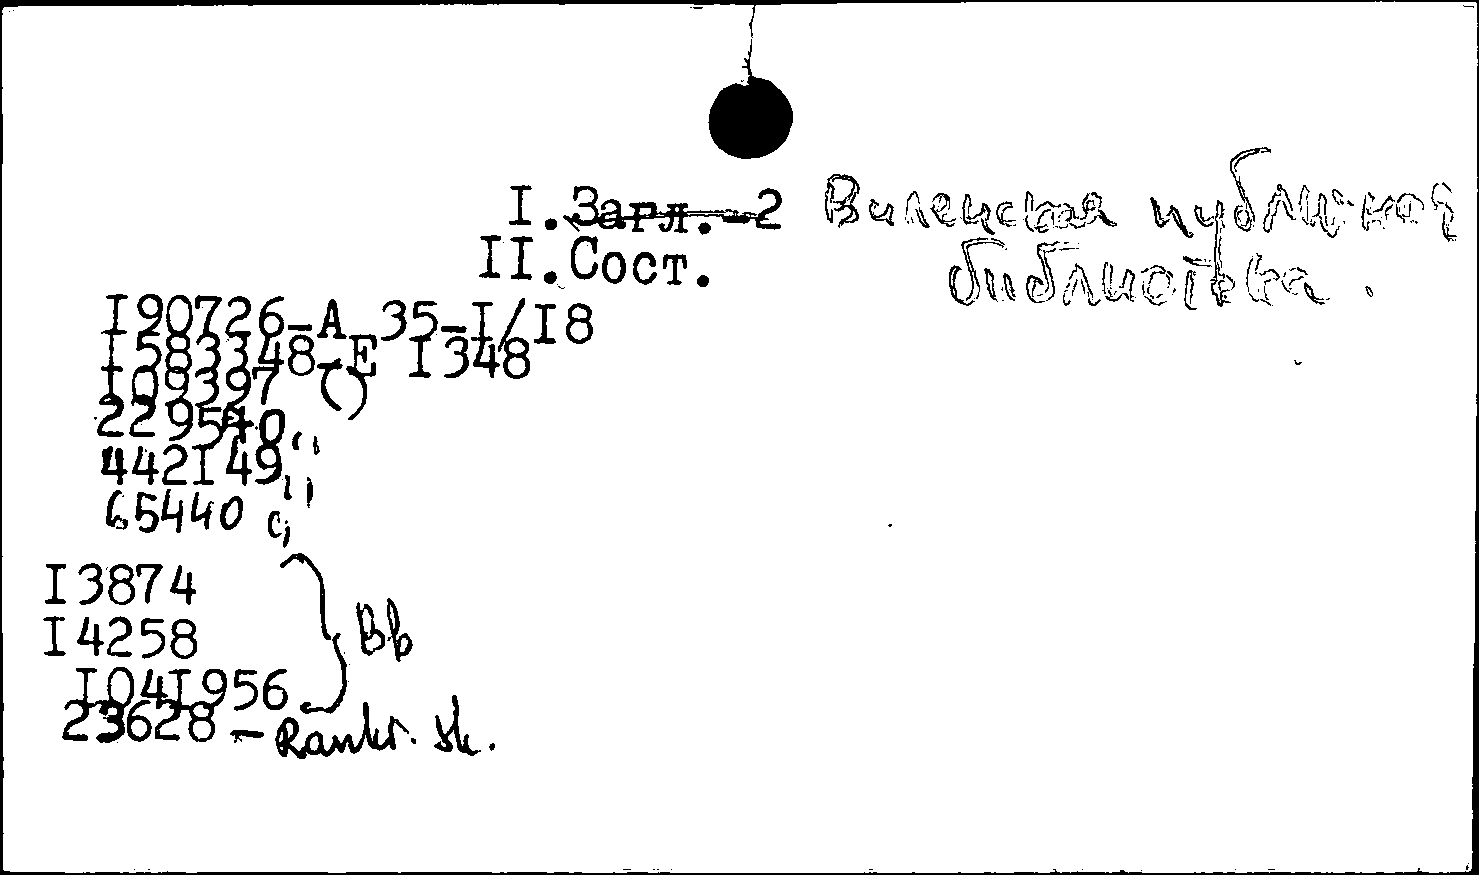 I. Загл.-2 Виленская публичная
II.Сост. библиотека.
I90726-А 35-I/I8
I583348-Е I348
I09397 ( )
229540 ( )
442I49 ( )
65440 ( )
I3874
I4258 Bb
I04I956
23628 - Rankr. sk.